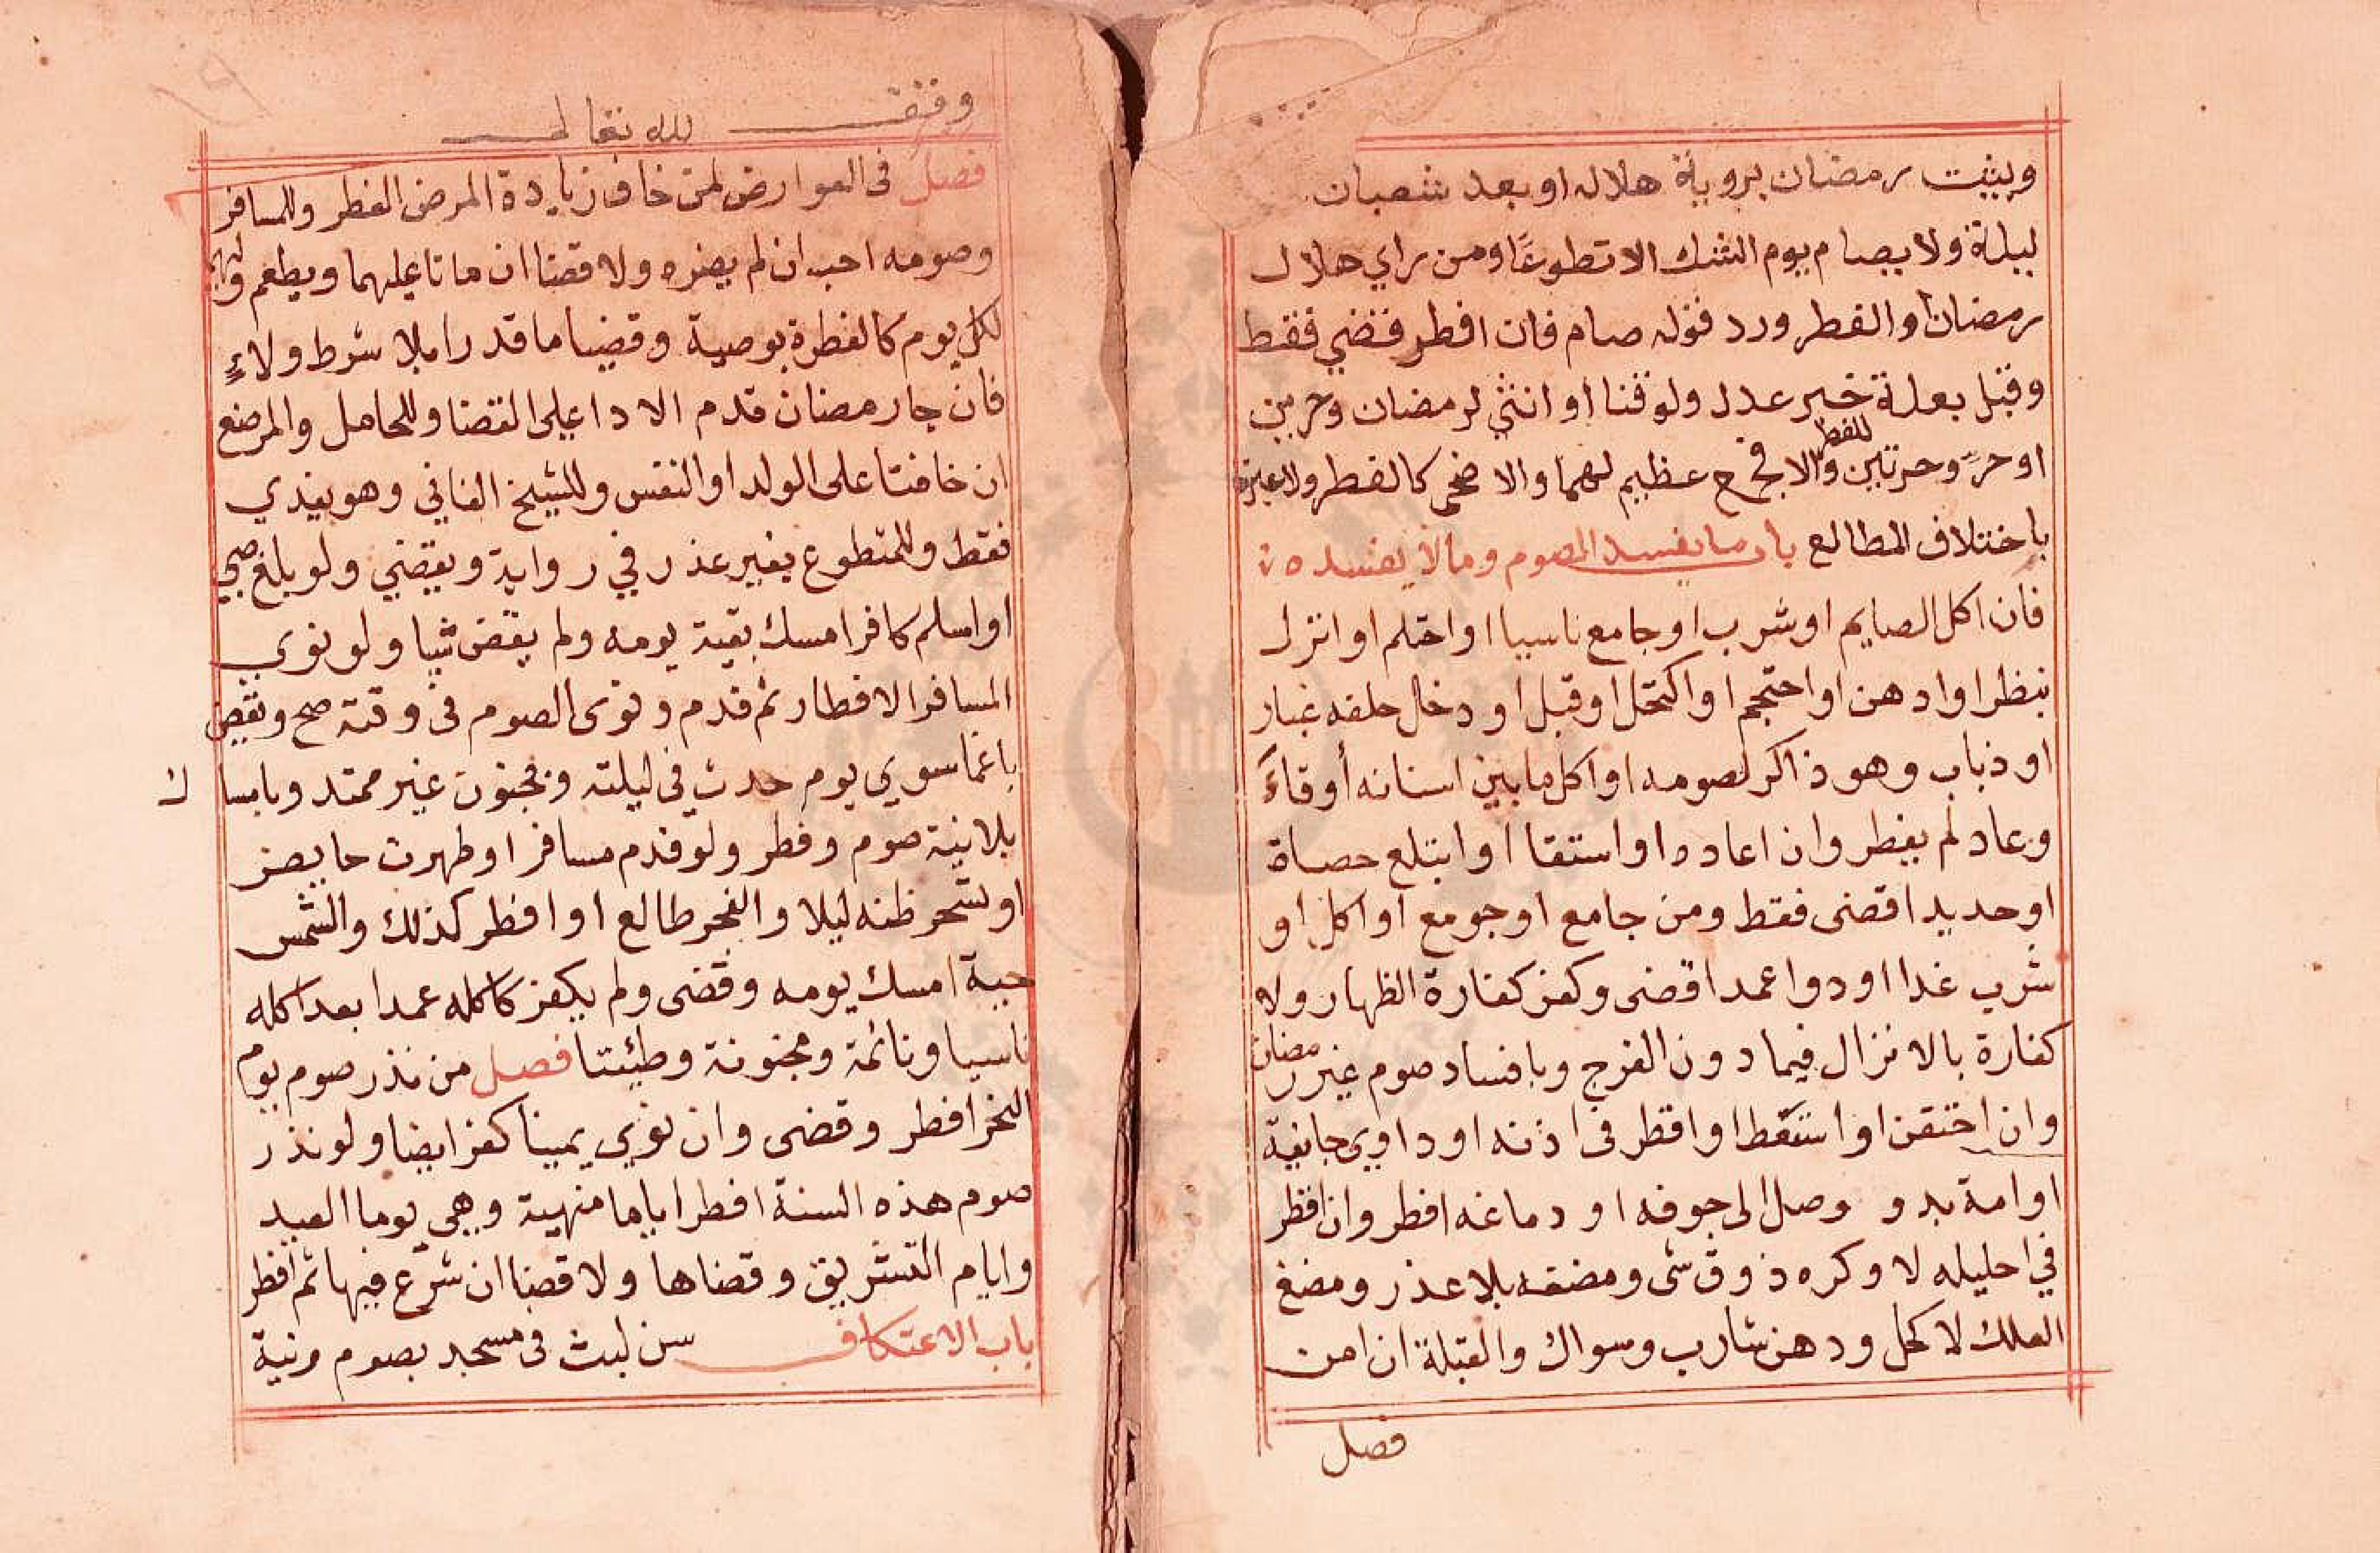 ويثبت رمضان بروية هلاله او بعد شعبان
ليلة ولا يصام يوم الشك الا تطوعًا ومن راي هلال
رمضان او الفطر ورد قوله صام فان افطر قضي فقط
وقبل بعلة خبر عدل ولو قنا او انثي لرمضان وحرين
او حر وحرتين للفطر والا فجمع عظيم لهما والاضحى كالفطر ولا عبرة
باختلاف المطالع باب ما يفسد الصوم وما لا يفسده
فان اكل الصايم او شرب او جامع ناسيا او احتلم او انزل
بنظر او ادهن او احتجم او اكتحل او قبل او دخل حلقه غبار
او ذباب وهو ذاكر لصومه او اكل ما بين اسنانه أو قاءَ
وعاد لم يفطر وان اعاده او استقا او ابتلع حصاة
او حديدا قضى فقط ومن جامع او جومع او اكل او
شرب غدا او دوا عمدا قضى وكفر كفارة الظهار ولا
كفارة بالانزال فيما دون الفرج وبافساد صوم غير رمضان
وان احتقن او استعط او اقطر في اذنه او داوي جايفة
او امة بدو وصل الى جوفه او دماغه افطر وان اقطر
في احليله لا وكره ذوق شى ومضغه بلا عذر ومضغ
العلك لا كحل ودهن شارب وسواك والقبلة ان امن
فصل
وقف لله تعالى
فصل فى العوارض لمن خاف زيادة المرض الفطر وللمسافر
وصومه احب ان لم يضره ولا قضا ان ماتا عليهما ويطعم وليهما
لكل يوم كالفطرة بوصية وقضيا ما قدرا بلا شرط ولاءٍ
فان جا رمضان قدم الادا على القضا وللحامل والمرضع
ان خافتا على الولد او النفس وللشيخ الفاني وهو يفدي
فقط وللمتطوع بغير عذر في رواية ويقضي ولو بلغ صبي
او اسلم كافر امسك بقية يومه ولم يقض شيا ولو نوي
المسافر الافطار ثم قدم ونوى الصوم فى وقته صح ويقضي
باغما سوي يوم حدث في ليلته وبجنون غير ممتد وبامساك
بلا نية صوم وفطر ولو قدم مسافر او طهرت حايض
او تسحر ظنه ليلا والفجر طالع او افطر كذلك والشمس
حية امسك يومه وقضى ولم يكفر كاكله عمدا بعد اكله
ناسيا ونائمة ومجنونة وطئتا فصل من نذر صوم يوم
النحر افطر وقضى وان نوي يمينا كفر ايضا ولو نذر
صوم هذه السنة افطر اياما منهية وهي يوما العيد
وايام التشريق وقضاها ولا قضا ان شرع فيها ثم افطر
باب الاعتكاف سن لبث فى مسجد بصوم ونية